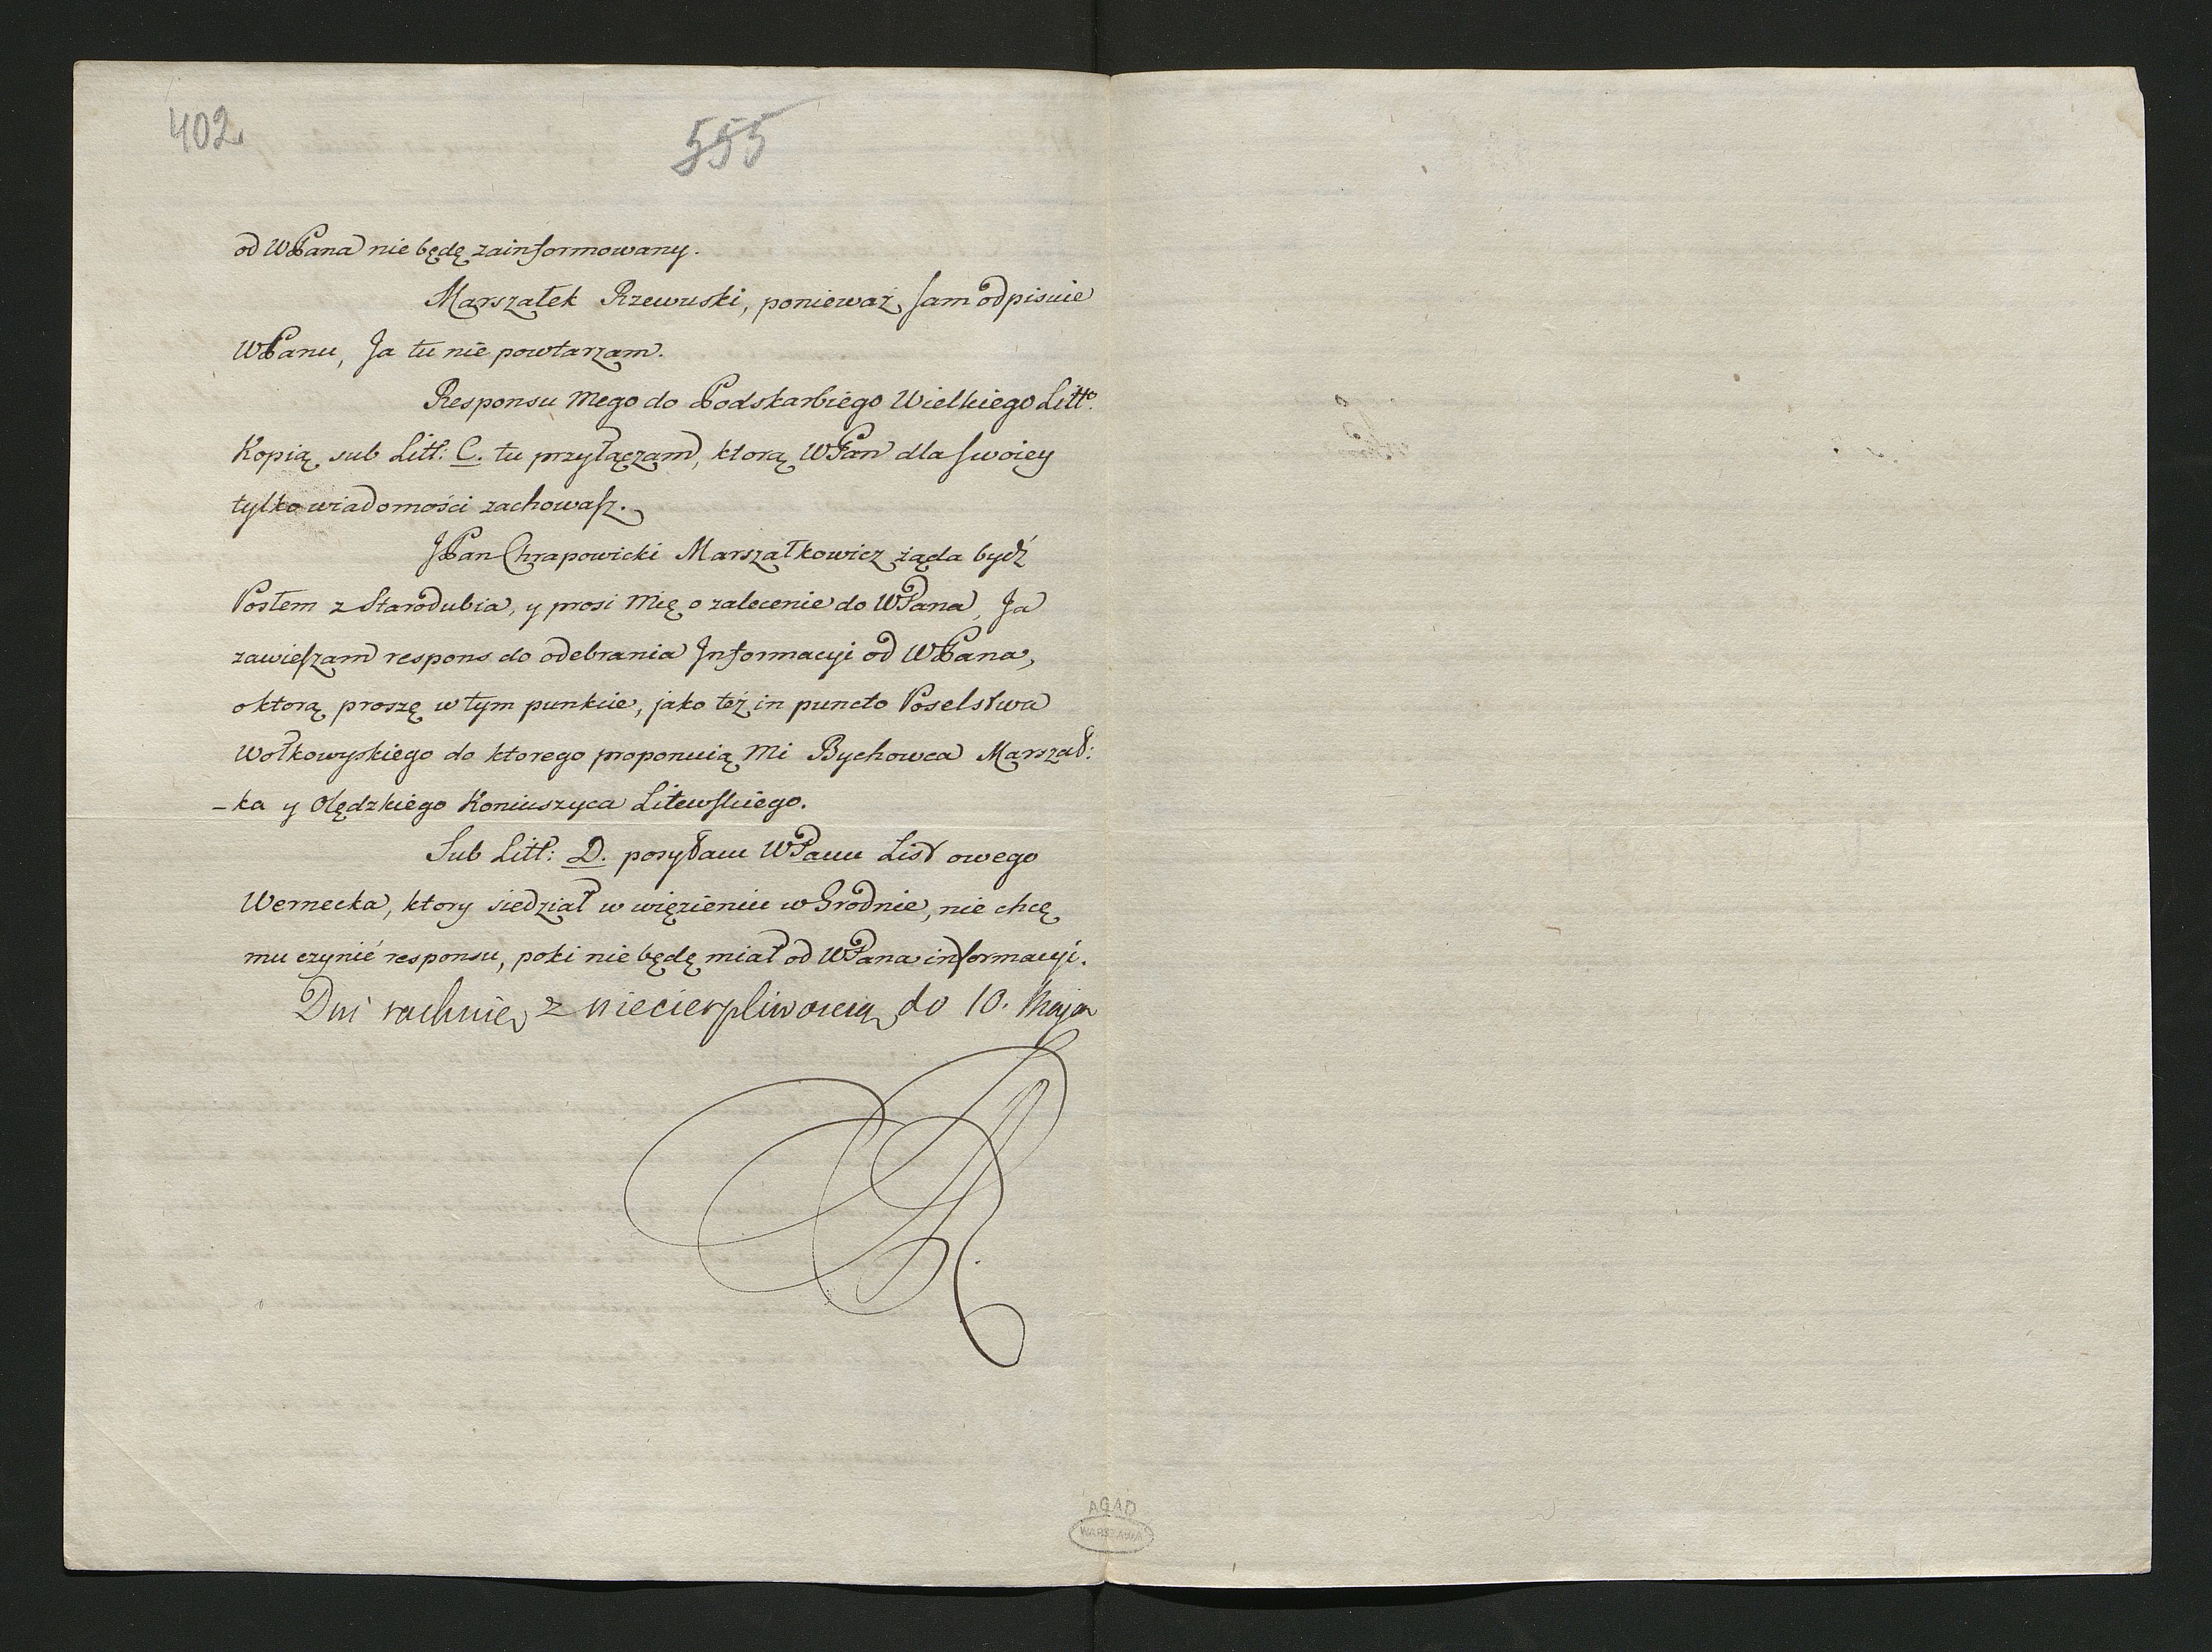 402.
555
od WPana nie będę zainformowany.
Marszałek Rzewuski, ponieważ sam odpisuie
WPanu, Ja tu nie powtarzam.
Responsu mego do Podskarbiego Wielkiego Litto.
Kopią sub Litt: C. tu przyłączam, ktorą WPan dla swoiey
tylko wiadomości zachowasz.
JPan Chrapowicki Marszałkowicz żąda bydź
Posłem z Starodubia, y prosi mię o zalecenie do WPana, Ja
zawieszam respons do odebrania Informacyi od WPana,
o ktorą proszę w tym punkcie, jako też in puncto Poselstwa
Wołkowyskiego do ktorego proponuią mi Bychowca Marszał:
-ka y Olędzkiego Koniuszyca Litewskiego.
Sub Litt: D. posyłam WPanu List owego
Wernecka, ktory siedział w więzieniu w Grodnie, nie chcę
mu czynić responsu, poki nie będę miał od WPana informacyi.
Dni rachuię z niecierpliwoscią do 10. Maja
AGAD
WARSZAWA